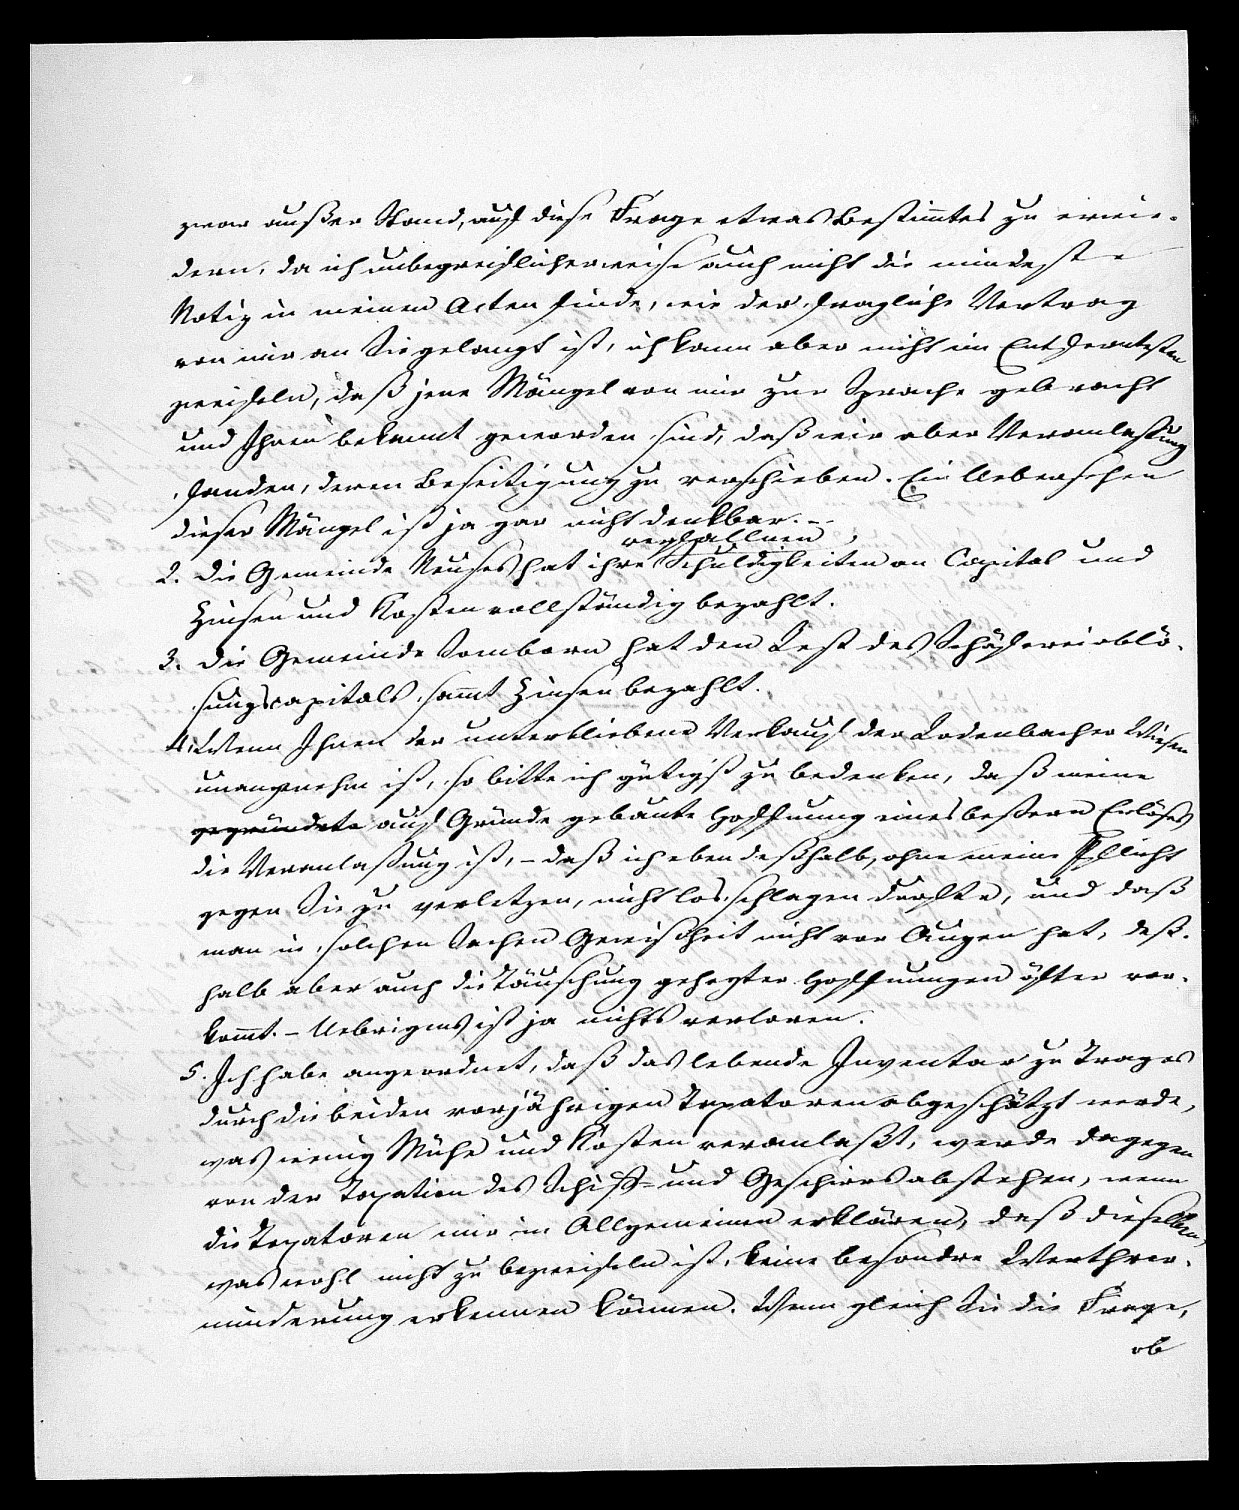 zwar außer Stand, auf diese Frage etwas Bestimtes zu erwie-
dern, da ich unbegreiflicherweise auch nicht die mindeste
Notiz in meinen Acten finde, wie der fragliche Vertrag
von mir an Sie gelangt ist, ich kann aber nicht im Entferntesten
zweifeln, daß jene Mängel von mir zur Sprache gebracht
und Ihnen bekannt geworden sind, daß wir aber Veranlassung
fanden, deren Beseitigung zu verschieben. Ein Uebersehen
dieser Mängel ist ja gar nicht denkbar. –
verfallnen
2. Die Gemeinde Neuses hat ihre Schuldigkeiten an Capital und
Zinsen und Kosten vollständig bezahlt.
3. Die Gemeinde Somborn hat den Rest des Schäfereiablö-
sungscapitals samt Zinsen bezahlt.
4. Wenn Ihnen der unterbliebene Verkauf der Rodenbacher Wiesen
unangenehm ist, so bitte ich gütigst zu bedenken, daß meine
gegründete auf Gründe gebaute Hoffnung eines bessern Erlöses
die Veranlassung ist, – daß ich eben deßhalb, ohne meine Pflicht
gegen Sie zu verletzen, nicht losschlagen durfte, und daß
man in solchen Sachen Gewißheit nicht vor Augen hat, deß-
halb aber auch die Täuschung gehegter Hoffnungen öfter vor-
komt. – Uebrigens ist ja nichts verloren.
5. Ich habe angeordnet, daß das lebende Inventar zu Trages
durch die beiden vorjährigen Taxatoren abgeschätzt werde,
was wenig Mühe und Kosten veranlaßt, werde dagegen
von der Taxation des Schiff- und Geschirrs abstehen, wenn
die Taxatoren mir im Allgemeinen erklären, daß dieselben,
was wohl nicht zu bezweifeln ist, keine besondre Werthver-
minderung erkennen können. Wenn gleich Sie die Frage,
ob